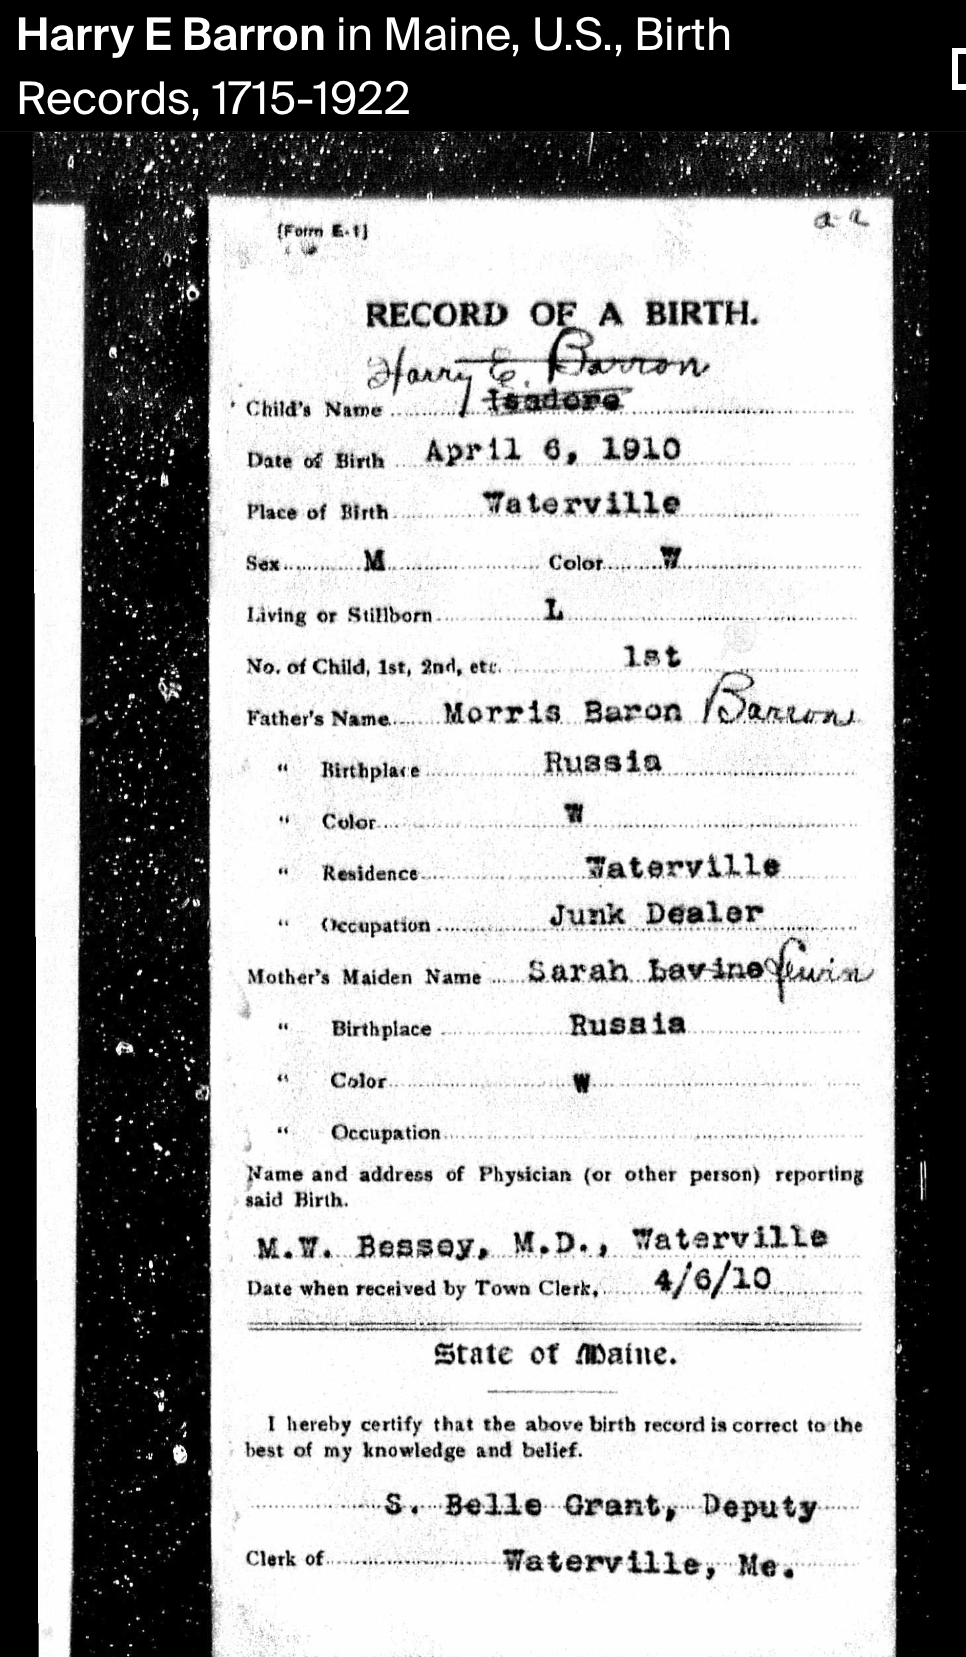 Harry E Barron in Maine, U.S., Birth
Records, 1715-1922
(Form E-1)
a-a
RECORD OF A BIRTH.
Harry E. Barron
Child's Name Isadore
Date of Birth April 6, 1910
Place of Birth Waterville
Sex M Color W
Living or Stillborn L
No. of Child, 1st, 2nd, etc. 1st
Father's Name Morris Baron Barron
" Birthplace Russia
" Color W
" Residence Waterville
" Occupation Junk Dealer
Mother's Maiden Name Sarah Lavine
" Birthplace Russia
" Color W
" Occupation
Name and address of Physician (or other person) reporting
said Birth.
M.W. Bessey, M.D., Waterville
Date when received by Town Clerk, 4/6/10
State of Maine.
I hereby certify that the above birth record is correct to the
best of my knowledge and belief.
S. Belle Grant, Deputy
Clerk of Waterville, Me.